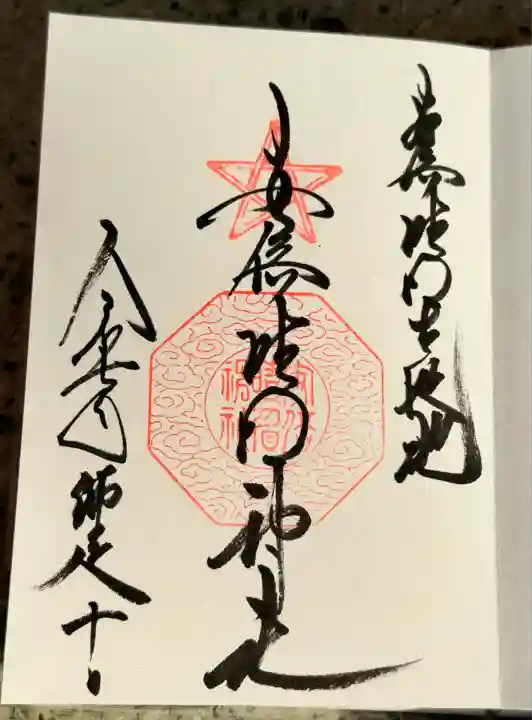 安倍晴明生誕地
安倍晴明神社
安倍晴明神社
令和 師走十